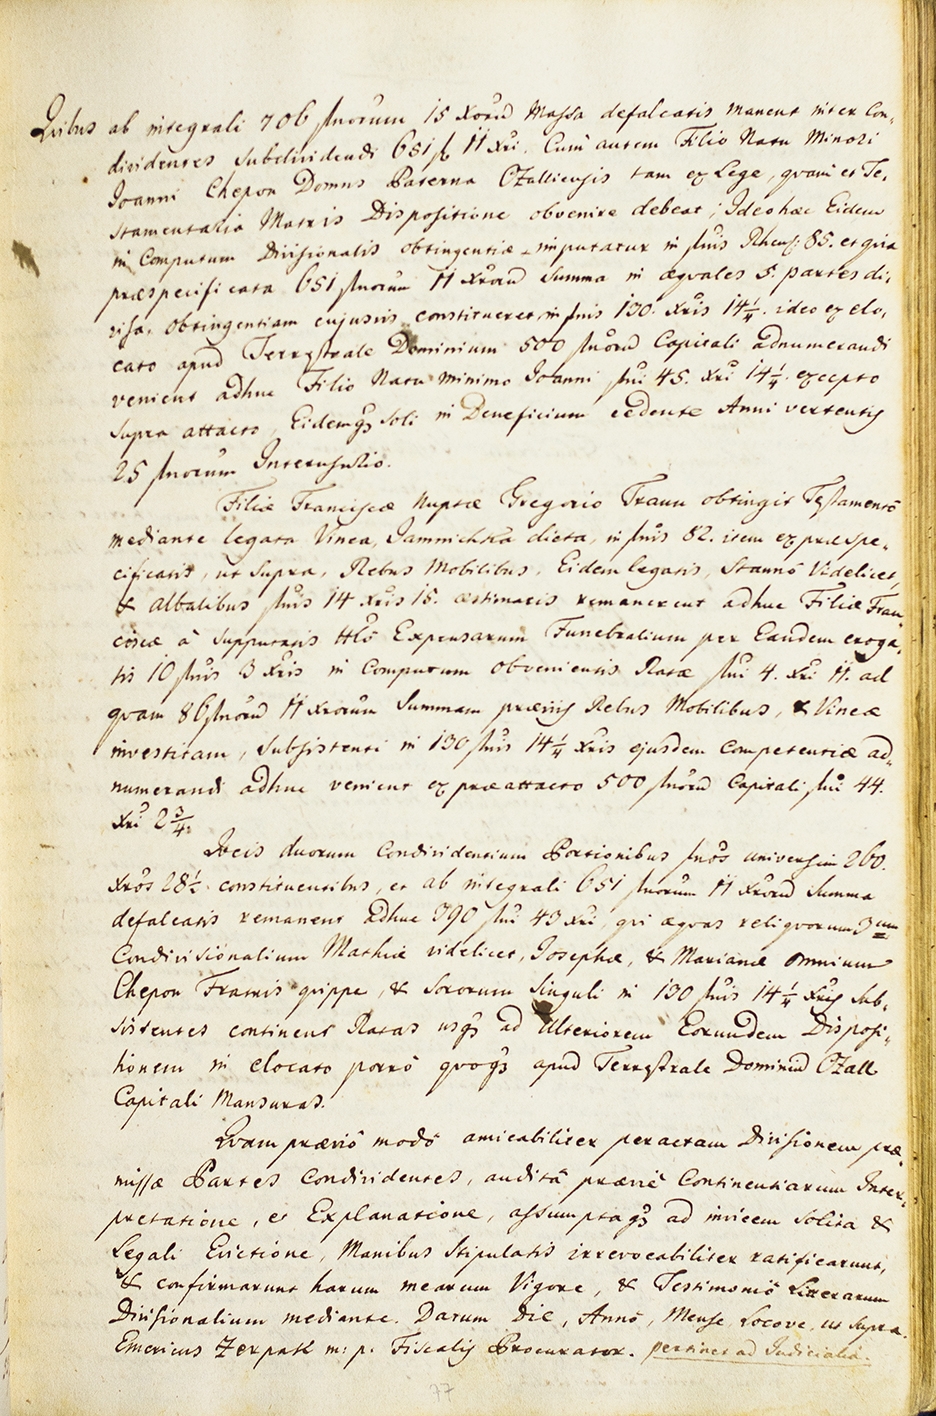 Quibus ab integrali 706 fnorum 15 xrorū Massa defalcatis manent inter Con-
dividentes subdividendi 651 f 11 xri. Cum autem Filio Natu Minori
Joanni Chepon Domus Paterna Ozalliensis tam ex Lege, quam et Te-
stamentalia Matris Dispositione obvenire debeat; Ideo hæc Eidem
in Computum Divisionalis obtingentiæ imputatur in fnis Rhens: 85. et quia
præspecificata 651 fnorum 11 xrorū Summa in æquales 5. partes di-
visa, obtingentiam cujusvis constitueret in fnis 130. xris 14¼. ideo ex elo-
cato apud Terrestrale Dominium 500 fnorū Capitali adnumerandi
venient adhuc Filio Natu Minimo Joanni fni 45. xri 14¼. excepto
supra attacto, Eidemqꝫ soli in Beneficium cedente Anni vertentis
25 fnorum Interusurio.
Filiæ Franciscæ Nuptæ Gregorio Traun obtingit Testamentō
mediante legata Vinea, Jamnichka dicta, in fnis 82. item ex præspe-
cificatis, ut supra, Rebus Mobilibus, Eidem legatis, Stannō Videlicet,
& albalibus fnis 14 xris 15. æstimatis remanerent adhuc Filiæ Fran-
ciscæ à supputatis ttlō Expensarum Funebralium per Eandem eroga-
tis 10 fnis 3 xris in Computum Obvenientis Ratæ fni 4. xri 11. ad
quam 86 fnorū 11 xrorum Summam præviis Rebus Mobilibus, & Vineæ
investitam, subsistenti in 130 fnis 14¼ xris ejusdem Competentiæ ad-
numerandi adhuc venient ex præattacto 500 fnorū Capitali fni 44.
xri 2¾.
Jtcis duorum Condividentium Portionibus fnōs universim 260.
xrōs 28½ constituentibus, et ab integrali 651 fnorum 11 xrorū Summa
defalcatis remanent adhuc 390 fni 43 xri, qui æquas reliquorum 3um
Condivisionalium Mathiæ videlicet, Josephæ, & Marianæ omnium
Chepon Fratris quippe, & Sororum singuli in 130 fnis 14¼ xris sub-
sistentes continent Ratas usqꝫ ad Ulteriorem Eorundem Disposi-
tionem in elocato porrò quoqꝫ apud Terrestrale Dominiū Ozall
Capitali Mansuras.
Quam præviō modō amicabiliter peractam Divisionem præ-
missæ Partes Condividentes, auditâ præviè Continentiarum Inter-
pretatione, et Explanatione, assumptaqꝫ ad invicem solita &
Legali Evictione, Manibus stipulatis irrevocabiliter ratificarunt,
& confirmarunt harum mearum Vigore, & Testimoniō Litterarum
Divisionalium mediante. Datum Die, Annō, Mense, Locove, ut supra.
Emericus Zerpak m: p. Fiscalis Procurator. pertinet ad Judicialia.
77